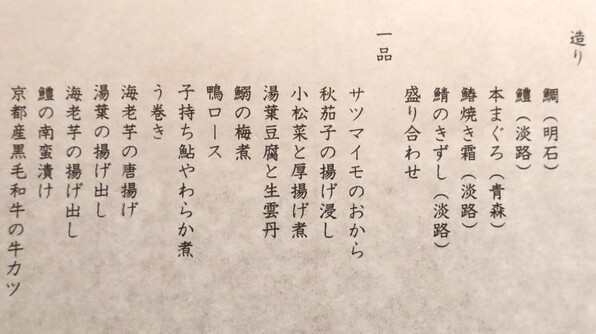 造り
鯛（明石）
鱧（淡路）
本まぐろ（青森）
鰆焼き霜（淡路）
鯖のきずし（淡路）
盛り合わせ
一品
サツマイモのおから
秋茄子の揚げ浸し
小松菜と厚揚げ煮
湯葉豆腐と生雲丹
鰯の梅煮
鴨ロース
子持ち鮎やわらか煮
う巻き
海老芋の唐揚げ
湯葉の揚げ出し
海老芋の揚げ出し
鱧の南蛮漬け
京都産黒毛和牛の牛カツ